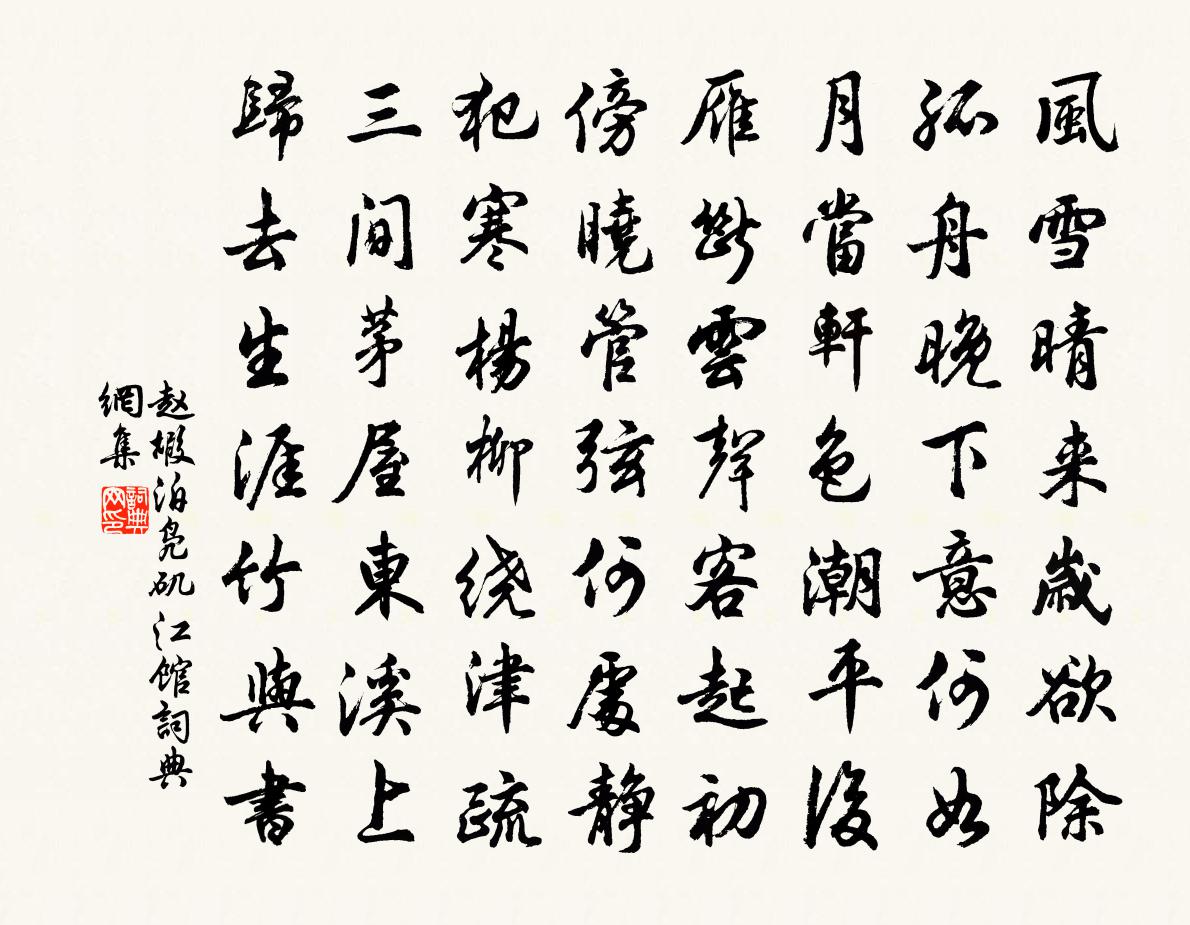 風雪晴来歲欲除
孤舟晚下意何如
月當軒色潮平後
雁斷雲聲客起初
傍曉管弦何處静
犯寒楊柳绕津疏
三間茅屋東溪上
歸去生涯竹與書
赵嘏泊凫矶江馆詞典
網集
詞典
网印